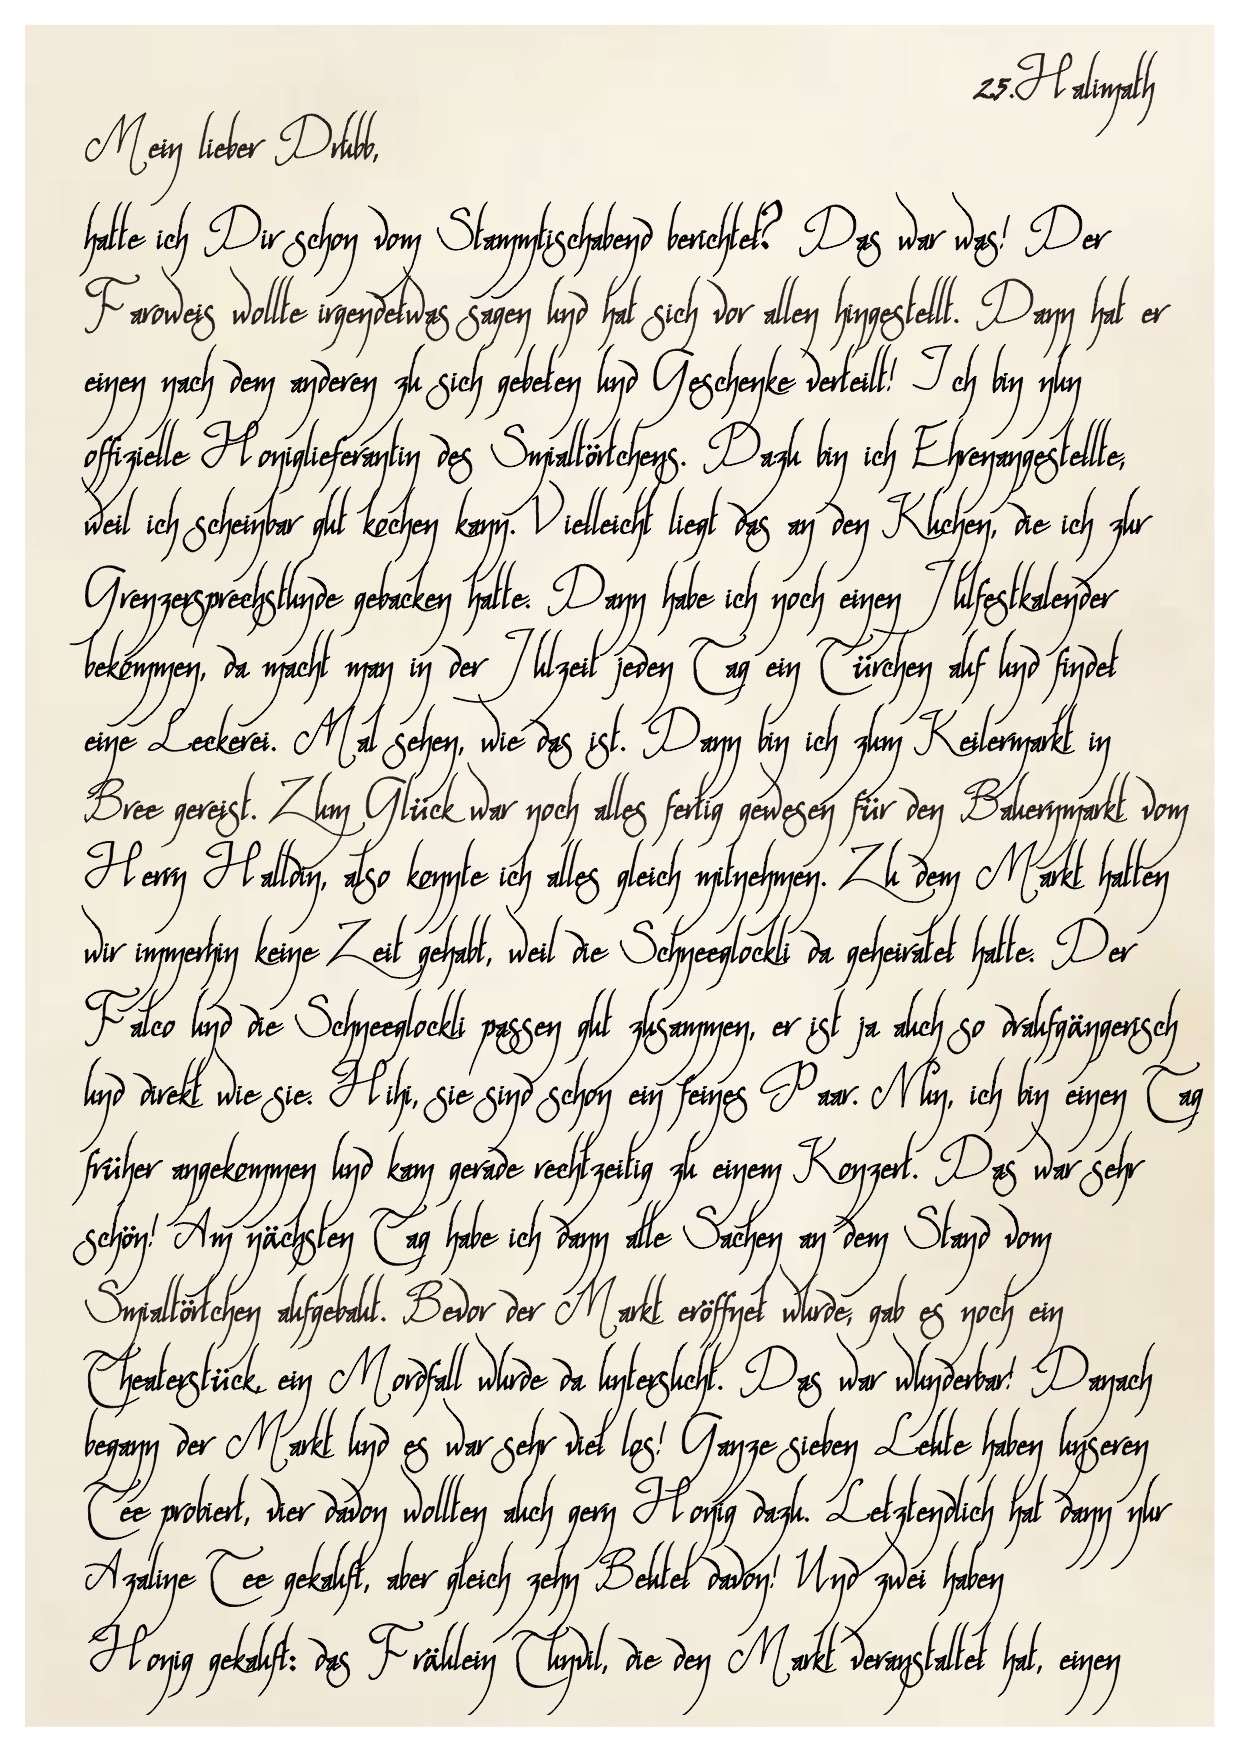 25. Halimath
Mein lieber Drubb,
hatte ich Dir schon vom Stammtischabend berichtet? Das war was! Der
Faroweis wollte irgendetwas sagen und hat sich vor allen hingestellt. Dann hat er
einen nach dem anderen zu sich gebeten und Geschenke verteilt! Ich bin nun
offizielle Honiglieferantin des Smialtörtchens. Dazu bin ich Ehrenangestellte,
weil ich scheinbar gut kochen kann. Vielleicht liegt das an den Kuchen, die ich zur
Grenzersprechstunde gebacken hatte. Dann habe ich noch einen Julfestkalender
bekommen, da macht man in der Julzeit jeden Tag ein Türchen auf und findet
eine Leckerei. Mal sehen, wie das ist. Dann bin ich zum Keilermarkt in
Bree gereist. Zum Glück war noch alles fertig gewesen für den Bauernmarkt vom
Herrn Halldin, also konnte ich alles gleich mitnehmen. Zu dem Markt hatten
wir immerhin keine Zeit gehabt, weil die Schneeglockli da geheiratet hatte. Der
Falco und die Schneeglockli passen gut zusammen, er ist ja auch so draufgängerisch
und direkt wie sie. Hihi, sie sind schon ein feines Paar. Nun, ich bin einen Tag
früher angekommen und kam gerade rechtzeitig zu einem Konzert. Das war sehr
schön! Am nächsten Tag habe ich dann alle Sachen an dem Stand vom
Smialtörtchen aufgebaut. Bevor der Markt eröffnet wurde, gab es noch ein
Theaterstück, ein Mordfall wurde da untersucht. Das war wunderbar! Danach
begann der Markt und es war sehr viel los! Ganze sieben Leute haben unseren
Tee probiert, vier davon wollten auch gern Honig dazu. Letztendlich hat dann nur
Azaline Tee gekauft, aber gleich zehn Beutel davon! Und zwei haben
Honig gekauft: das Fräulein Tundil, die den Markt veranstaltet hat, einen